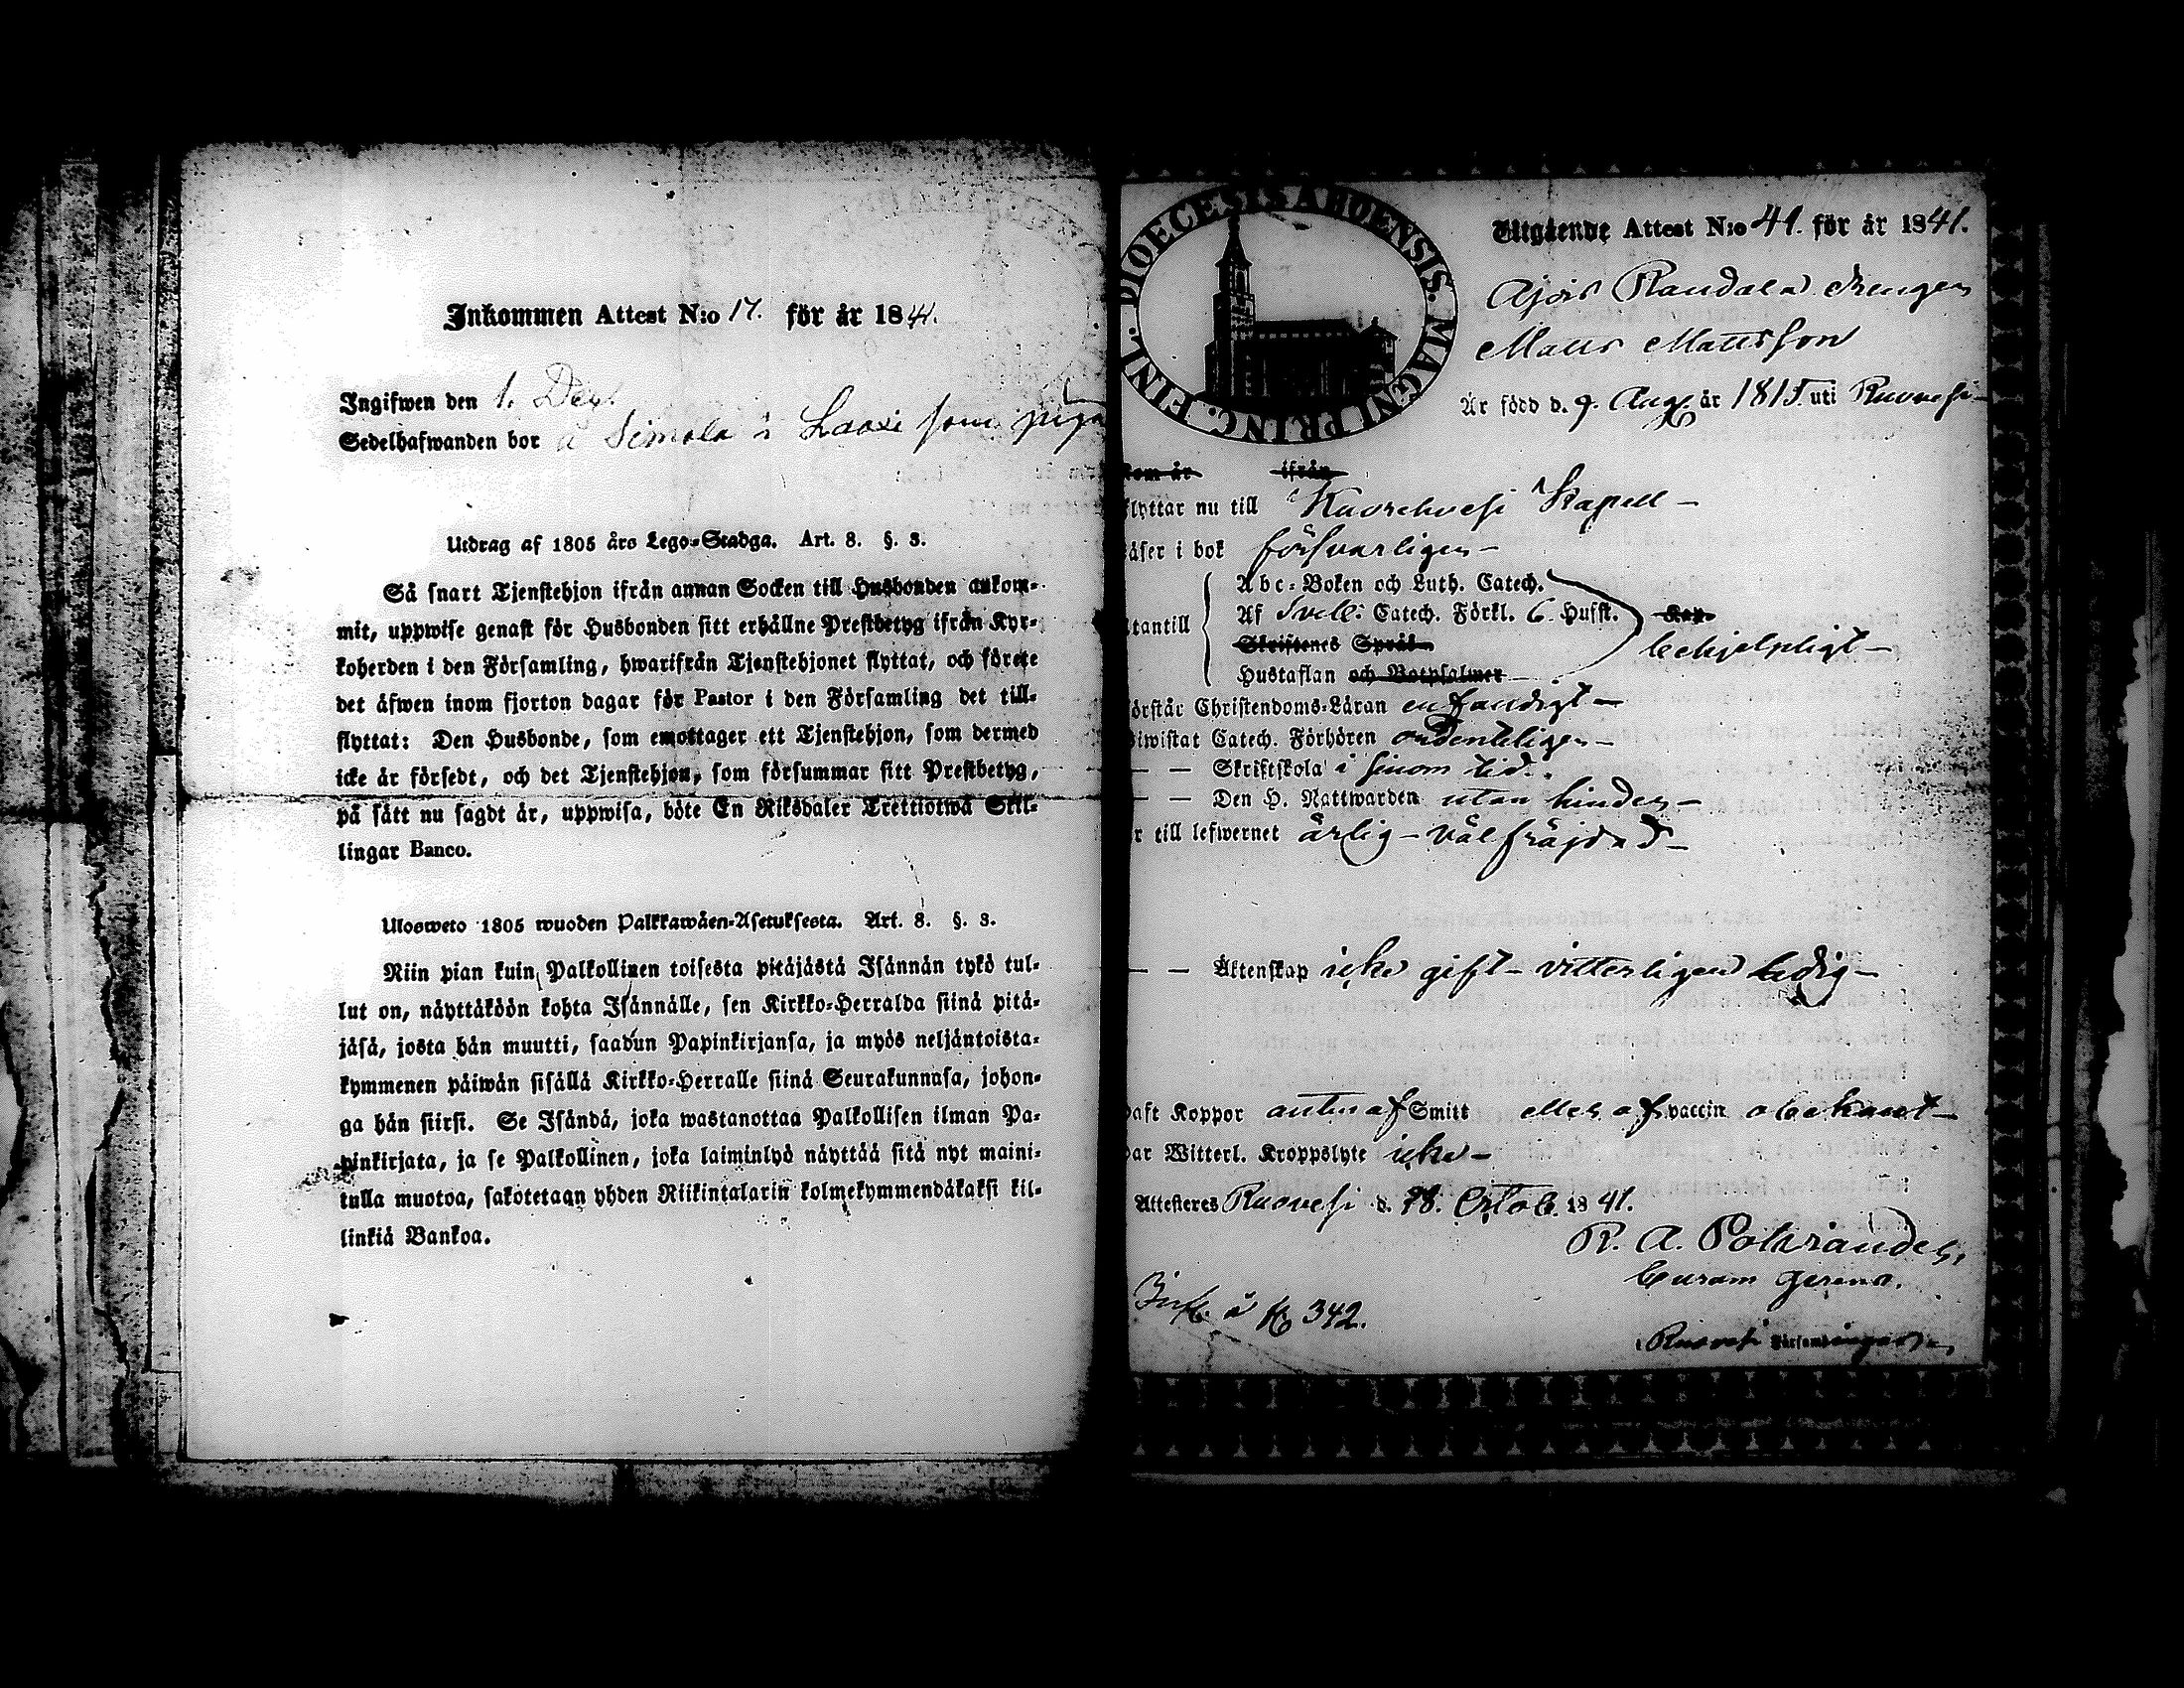 Inkommen Attest N:o 17. för år 1841.
Ingifwen den 1. Dec.
Sedelhafwanden bor å Simola i Laasi som piga
Utdrag af 1805 års Lego-Stadga. Art. 8. §. 3.
Så snart Tjenstehjon ifrån annan Socken till Husbonden ankom-
mit, uppwise genast för Husbonden sitt erhållne Prestbetyg ifrån Kyr-
koherden i den Församling, hwarifrån Tjenstehjonet flyttat, och förete
det äfwen inom fjorton dagar för Pastor i den Församling det till-
flyttat: Den Husbonde, som emottager ett Tjenstehjon, som dermed
icke är försedt, och det Tjenstehjon, som försummar sitt Prestbetyg,
på sätt nu sagdt är, uppwisa, böte En Riksdaler Trettiotwå Skil-
lingar Banco.
Ulosweto 1805 wuoden Palkkawäen-Asetuksesta. Art. 8. §. 3.
Niin pian kuin Palkollinen toisesta pitäjästä Isännän tykö tul-
lut on, näyttäköön kohta Isännälle, sen Kirkko-Herralda siinä pitä-
jäsä, josta hän muutti, saadun Papinkirjansa, ja myös neljäntoista-
kymmenen päiwän sisällä Kirkko-Herralle siinä Seurakunnasa, johon-
ga hän siirsi. Se Isändä, joka wastanottaa Palkollisen ilman Pa-
pinkirjata, ja se Palkollinen, joka laiminlyö näyttää sitä nyt maini-
tulla muotoa, sakotetaan yhden Riikintalarin kolmekymmendäkaksi kil-
linkiä Bankoa.
DIOECESIS ABOENSIS. MAGNI PRINC. FINL.
Utgående Attest N:o 41. för år 1841.
Drengen
Matts Mattsson
Är född d. 9. Aug. år 1815 uti Ruovesi
kom år ifrån
flyttar nu till Kuorehvesi Kapell
läser i bok försvarligen
Abc-Boken och Luth. Catech.
Af Sveb: Catech. Förkl. 6 Husst. Kap.
utantill behjelpligt
Skriftenes Språk
Hustaflan och Botpsalmer
örstår Christendoms-Läran enfaldigt
biwistat Catech. Förhören ordenteligen
— — Skriftskola i sinom tid.
— — Den H. Nattwarden utan hinder
r till lefwernet ärlig - välfräjdad
— — Äktenskap icke gift - vitterligen ledig
haft Koppor antin af Smitt eller af vaccin obekant
har Witterl. Kroppslyte icke
Attesteres Ruovesi d. 28. Octob. 1841.
R. A. Polviander,
Curam gerens.
Inf. å N 342.
Ruovesi Församlingars